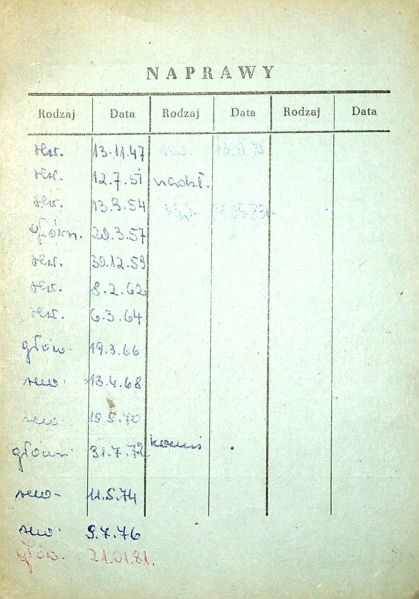 NAPRAWY
Rodzaj Data Rodzaj Data Rodzaj Data
rew. 13.11.47
rew. 12.7.51 nadzł.
rew. 13.3.54
główn. 20.3.57
rew. 30.12.59
rew. 8.2.62
rew. 6.3.64
głów. 19.3.66
rew. 13.4.68
rew. 19.5.70
główn. 31.7.72
rew. 11.5.74
rew. 9.7.76
głów. 21.01.81.